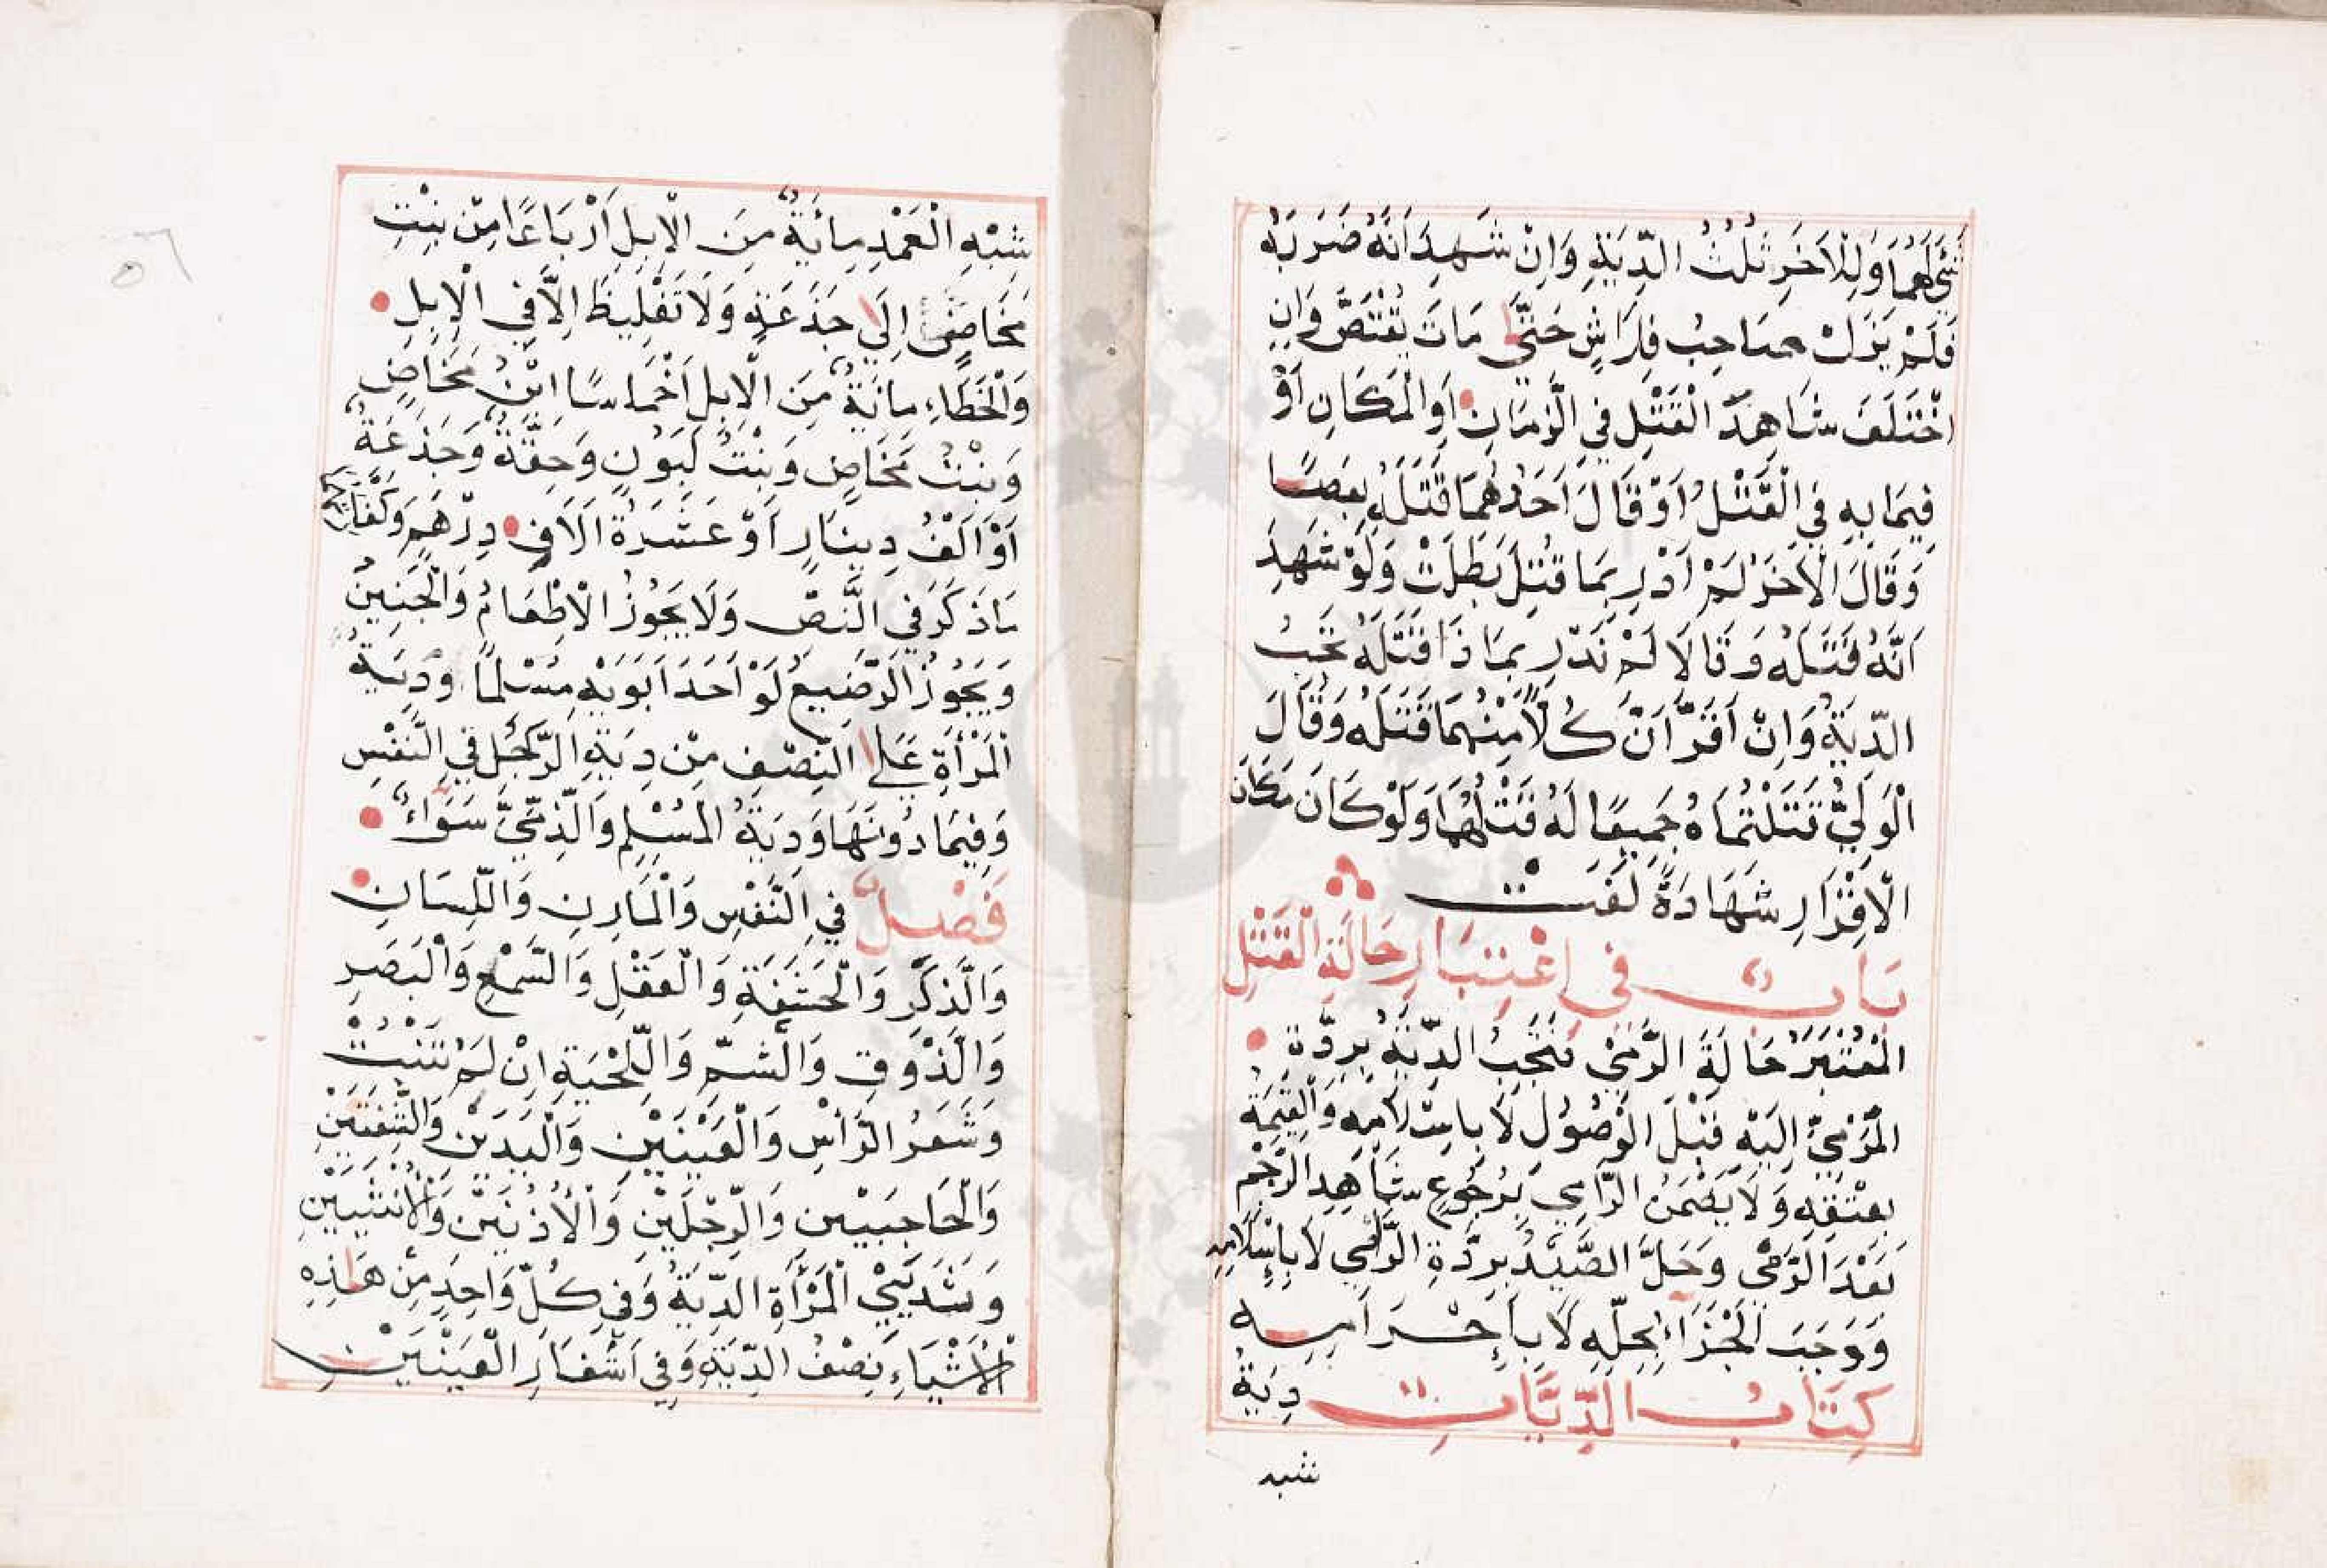 شَيْءَ لَهُمَا وَلِلْاٰخَرِ ثُلُثُ الدِّيَةِ وَاِنْ شَهِدَ اَنَّهُ ضَرَبَهُ
فَلَمْ يَزَلْ صَاحِبَ فِرَاشٍ حَتّٰى مَاتَ يُقْتَصُّ وَاِنِ
اخْتَلَفَ شَاهِدَ الْقَتْلِ فِي الزَّمَانِ اَوِ الْمَكَانِ اَوْ
فِيمَا بِهِ فِي الْقَتْلُ اَوْ قَالَ اَحَدُهُمَا قَتَلَهُ بِعَصًا
وَقَالَ الْاٰخَرُ لَمْ اَدْرِ بِمَا قُتِلَ بَطَلَتْ وَلَوْ شَهِدَ
اَنَّهُ قَتَلَهُ وَقَالَا لَمْ نَدْرِ بِمَا ذَا قَتَلَهُ تَجِبُ
الدِّيَةُ وَاِنْ اَقَرَّ اَنَّ كُلًّا مِنْهُمَا قَتَلَهُ وَقَالَ
الْوَلِيُّ قَتَلْتُمَاهُ جَمِيعًا لَهُ قَتْلُهُمَا وَلَوْ كَانَ مَكَانَ
الْاِقْرَارِ شَهَادَةً لَغَتْ
بَابٌ فِي اعْتِبَارِ حَالَةِ الْقَتْلِ
الْمُعْتَبَرُ حَالَةَ الرَّمْيِ فَتَجِبُ الدِّيَةُ بِرِدَّةِ
الْمَرْمِيِّ اِلَيْهِ قَبْلَ الْوُصُولِ لَا بِاِسْلَامِهِ وَالْقِيمَةُ
بِعِتْقِهِ وَلَا يَضْمَنُ الرَّامِي بِرُجُوعِ شَاهِدِ الرَّجْمِ
بَعْدَ الرَّمْيِ وَحَلَّ الصَّيْدُ بِرِدَّةِ الرَّامِي لَا بِاِسْلَامِهِ
وَوَجَبَ الْجَزَآءُ بِحِلِّهِ لَا بِاِحْرَامِهِ
كِتَابُ الدِّيَّاتِ دِيَةُ
شبه
شِبْهِ الْعَمْدِ مِائَةٌ مِنَ الْاِبِلِ اَرْبَاعًا مِنْ بِنْتِ
مَخَاضٍ اِلَى جَذَعَةٍ وَلَا تَغْلِيظَ اِلَّا فِي الْاِبِلِ
وَالْخَطَاءِ مِائَةٌ مِنَ الْاِبِلِ اَخْمَاسًا ابْنُ مَخَاضٍ
وَبِنْتُ مَخَاضٍ وَبِنْتُ لَبُونٍ وَحِقَّةٌ وَجَذَعَةٌ
اَوْ اَلْفُ دِينَارٍ اَوْ عَشَرَةُ اٰلَافِ دِرْهَمٍ وَكَفَّارَتُهُمَا
مَا ذَكَرَ فِي النَّصِّ وَلَا يَجُوزُ الْاِطْعَامُ وَالْجَنِينُ
وَيَجُوزُ الرَّضِيعُ لَوْ اَحَدَ اَبَوَيْهِ مُسْلِمًا وَدِيَةُ
الْمَرْأَةِ عَلٰى النِّصْفِ مِنْ دِيَةِ الرَّجُلِ فِي النَّفْسِ
وَفِيمَا دُونَهَا وَدِيَةُ الْمُسْلِمِ وَالذِّمِّيِّ سَوَآءٌ
فَصْلٌ فِي النَّفْسِ وَالْمَارِنِ وَاللِّسَانِ
وَالذَّكَرِ وَالْحَشَفَةِ وَالْعَقْلِ وَالسَّمْعِ وَالْبَصَرِ
وَالذَّوْقِ وَالشَّمِّ وَاللِّحْيَةِ اِنْ لَمْ تَنْبُتْ
وَشَعَرُ الرَّأْسِ وَالْعَيْنَيْنِ وَالْيَدَيْنِ وَالشَّفَتَيْنِ
وَالْحَاجِبَيْنِ وَالرِّجْلَيْنِ وَالْاُذُنَيْنِ وَالْاُنْثَيَيْنِ
وَثَدْيَيِ الْمَرْأَةِ الدِّيَةُ وَفِي كُلِّ وَاحِدٍ مِنْ هٰذِهِ
الْاَشْيَاءِ نِصْفُ الدِّيَةِ وَفِي اَشْفَارِ الْعَيْنَيْنِ